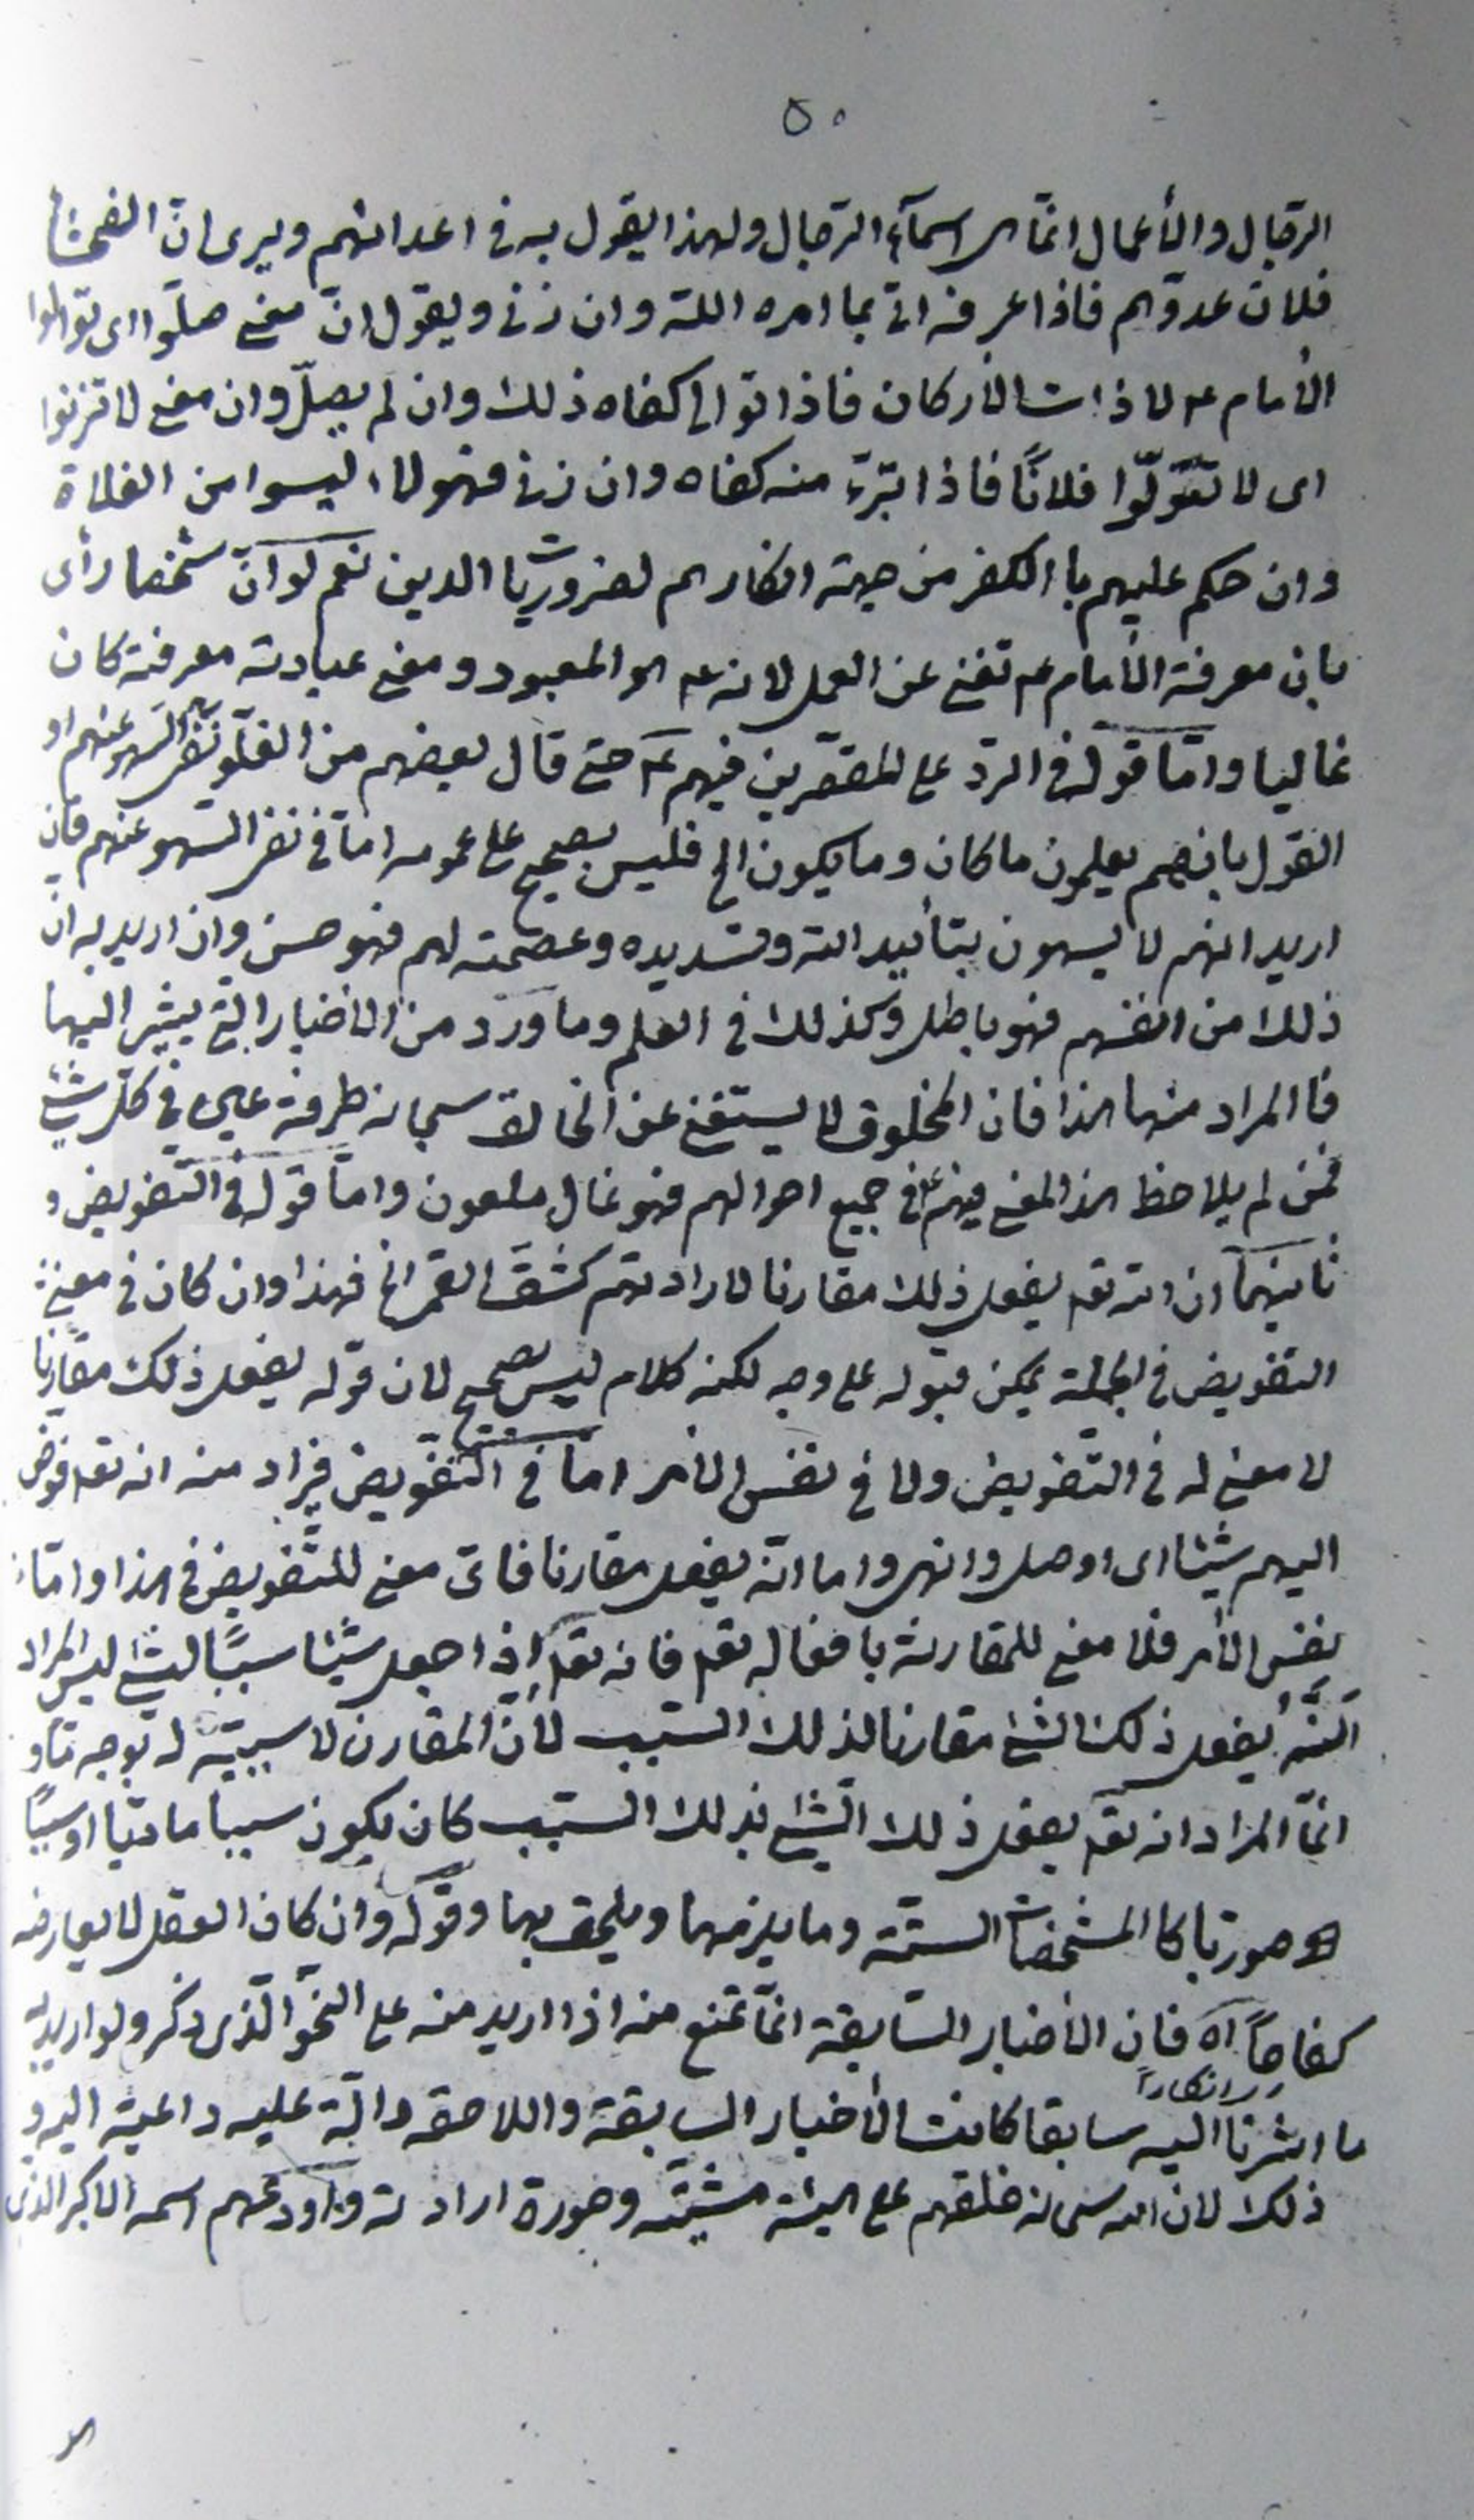 ٥٠
الرجال والأعمال انّما هى اسمآء الرجال ولهذا يقول به فى اعدائهم ويرى انّ الفحشاء
فلان عدوّهم فاذا عرفه اتى بما امره اللّه وان زنى ويقول انّ معنى صلّوا اى توالوا
الأمام ع لا ذات الأركان فاذا توالى كفاه ذلك وان لم يصلّ وان معنى لا تزنوا
اى لا تتولّوا فلانًا فاذا تبرّء منه كفاه وان زنى فهولاء ليسوا من الغلاة
وان حكم عليهم باالكفر من جهة انكارهم لضروريات الدين نعم لو انّ شخصا رأى
بان معرفة الأمام ع تغنى عن العمل لانه ع هو المعبود ومعنى عبادته معرفته كان
غاليا وامّا قوله فى الردّ على المقصّرين فيهم ع حتى قال بعضهم من الغلوّ نفى السهو عنهم او
القول بانهم يعلمون ما كان وما يكون الخ فليس بصحيح على عمومه امّا فى نفى السهو عنهم فان
اريد انهم لا يسهون بتأييد اللّه وتسديده وعصمته لهم فهو حسن وان اريد به ان
ذلك من انفسهم فهو باطل وكذلك فى العلم وما ورد من الاخبار التى يشير اليها
فاالمراد منها هذا فان المخلوق لا يستغنى عن الخالق سبحانه طرفة عين فى كلّ شئ
فمن لم يلاحظ هذا المعنى فيهم ع فى جميع احوالهم فهو غال ملعون وامّا قوله فى التفويض و
ثانيهما ان اللّه تعه يفعل ذلك مقارنا لارادتهم كشقّ القمر الخ فهذا وان كان فى معنى
التفويض فى الجملة يمكن قبوله على وجه لكنه كلام ليس بصحيح لان قوله يفعل ذلك مقارنا
لا معنى له فى التفويض ولا فى نفس الأمر امّا فى التفويض فيراد منه انه تعه فوّض
اليهم شيئا اى اوصل وانهى واما انّه يفعل مقارنا فاىّ معنى للتّفويض فى هذا وامّا
بنفس الأمر فلا معنى للمقارنة بافعاله تعه فانه تعه اذا جعل شيئا سببًا لشئ ليس المراد
انّه يفعل ذلك الشئ مقارنا لذلك السّبب لأنّ المقارن لا سببيّة له بوجه مّا و
انّما المراد انه تعه يفعل ذلك الشئ بذلك السّبب كان يكون سببا ماديّا او سببًا
صوريّا كا المشخّصات الستّة وما يلزمها ويلحق بها وقوله وان كان العقل لا يعارضه
كفاحًا اه فان الأخبار السّابقة انّما تمنع منه اذا اريد منه على النحو الّذى ذكر ولو اريد به
ما اشرنا اليه سابقا كانت الأخبار السابقة واللاحقه دالّة عليه داعية اليه و
ذلك لان اللّه سبحانه خلقهم على هيئة مشيّته وصورة ارادته واودعهم اسمه الاكبر الذى